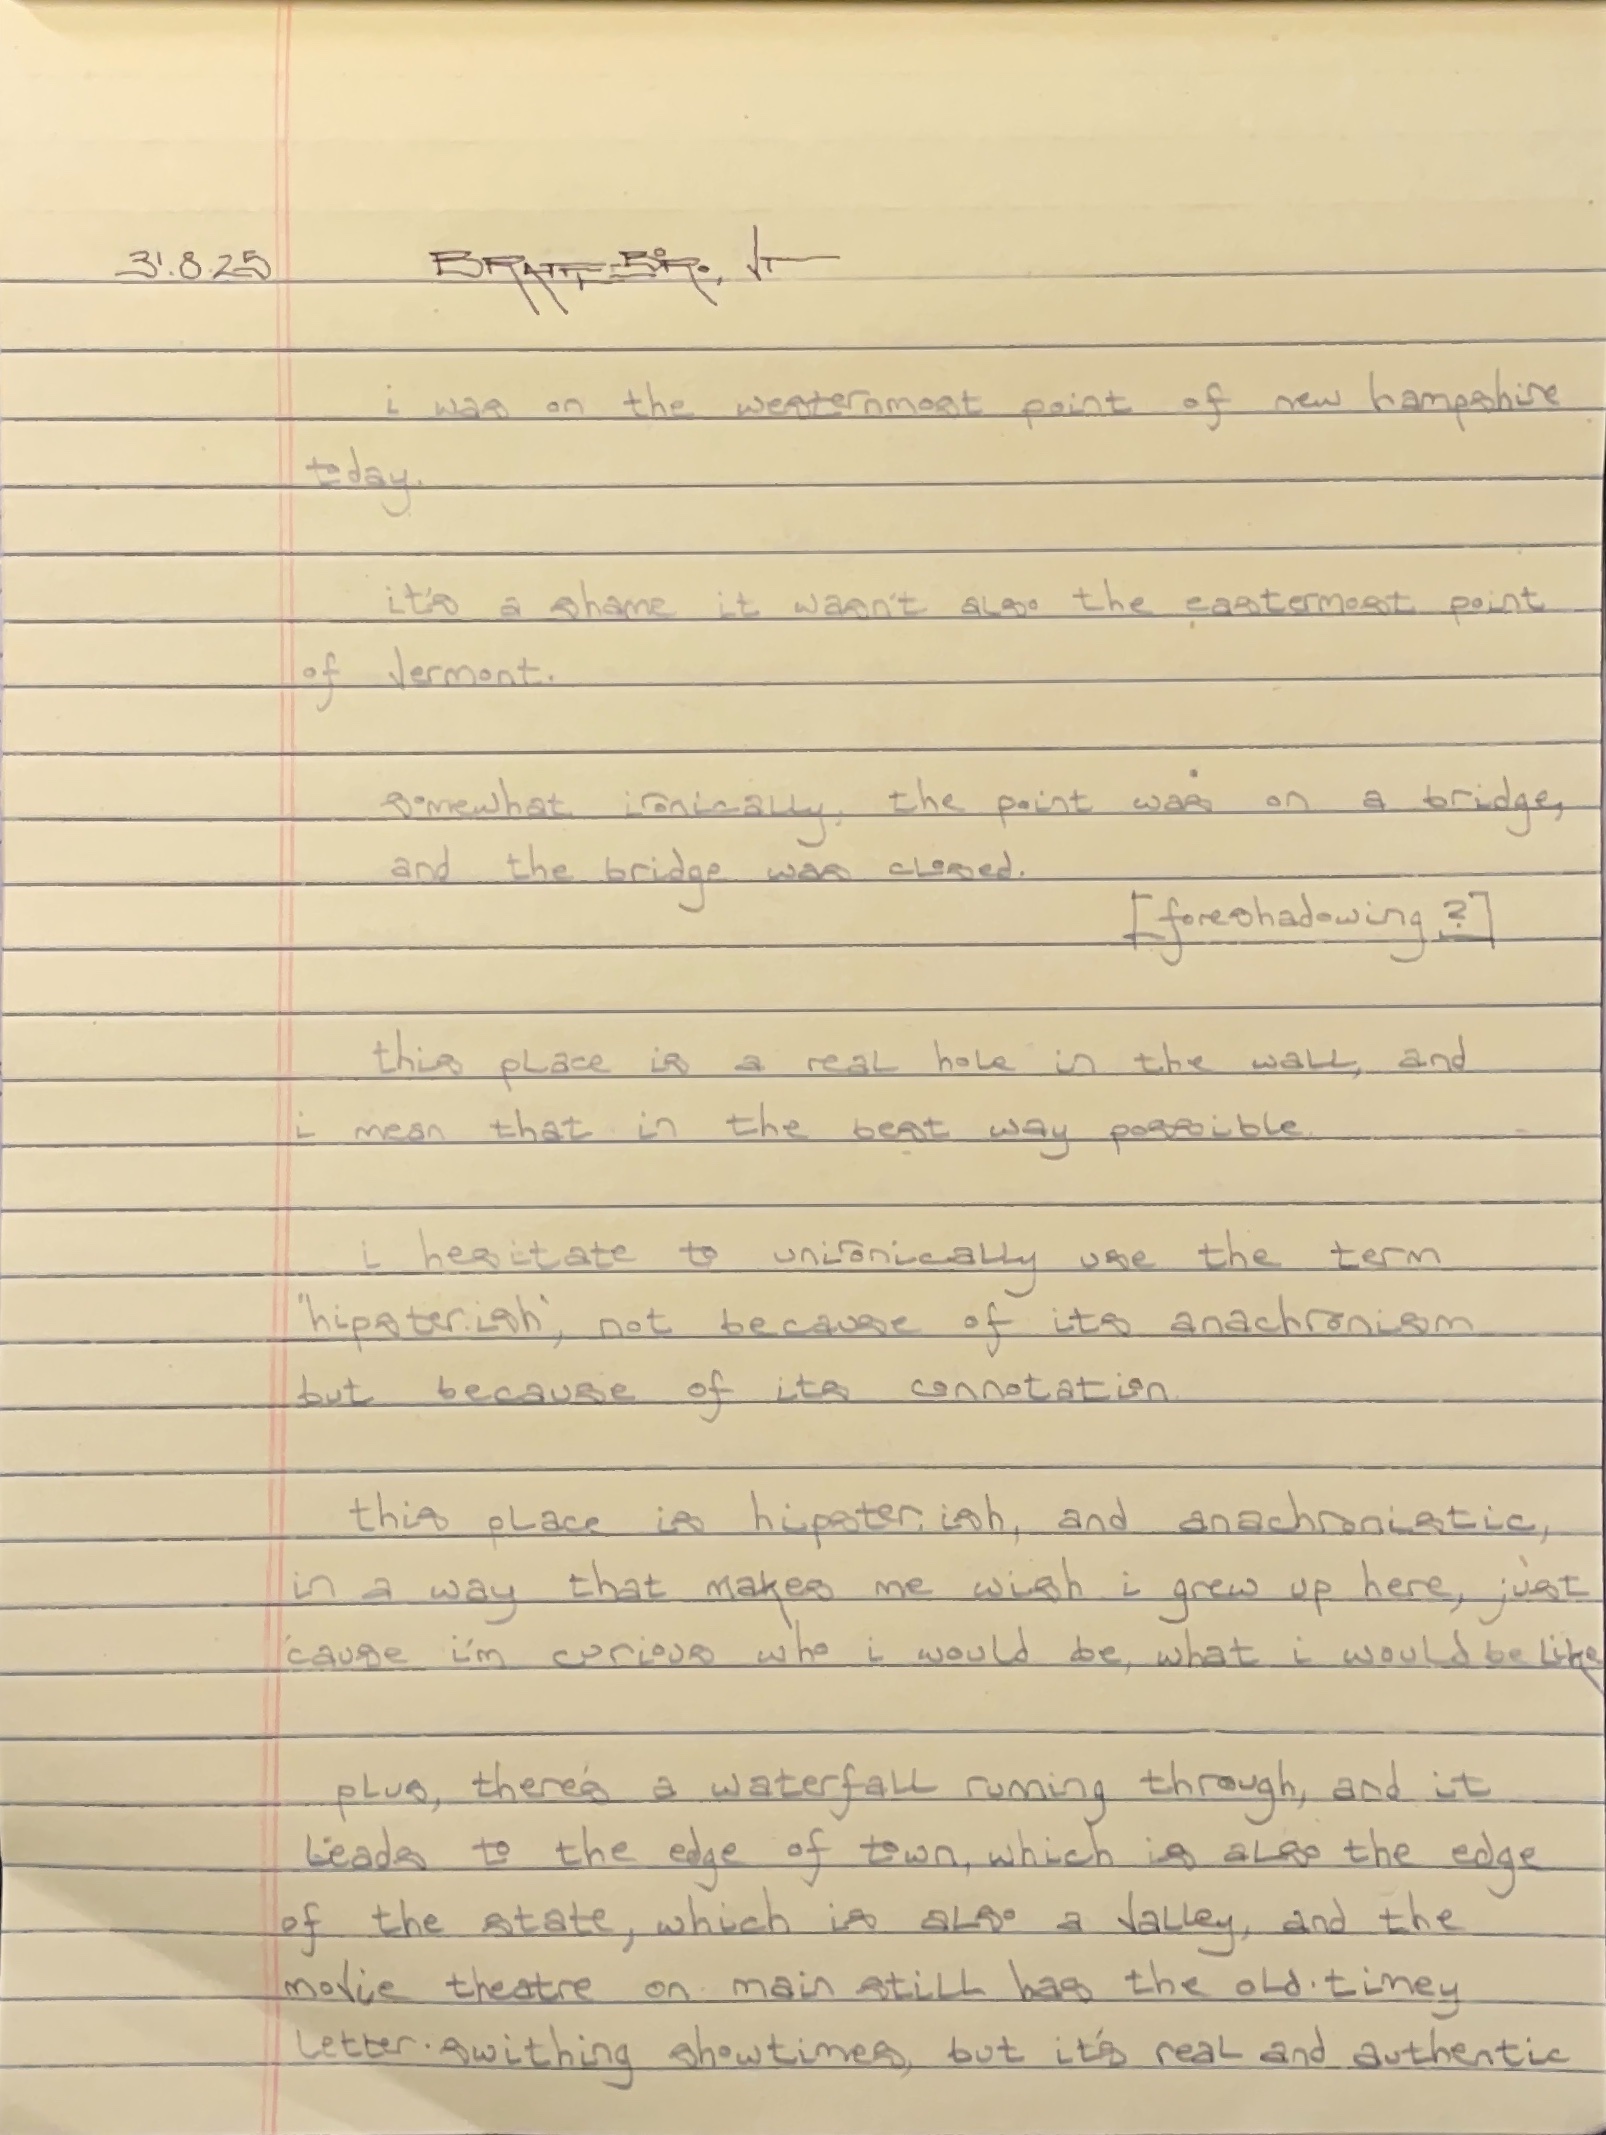 31.8.25 BRATTLEBORO, VT
i was on the westernmost point of new hampshire
today.
it's a shame it wasn't also the easternmost point
of vermont.
somewhat ironically, the point was on a bridge,
and the bridge was closed.
[foreshadowing?]
this place is a real hole in the wall, and
i mean that in the best way possible.
i hesitate to unironically use the term
'hipster.ish', not because of its anachronism
but because of its connotation.
this place is hipster.ish, and anachronistic,
in a way that makes me wish i grew up here, just
'cause i'm curious who i would be, what i would be like
plus, there's a waterfall running through, and it
leads to the edge of town, which is also the edge
of the state, which is also a valley, and the
movie theatre on main still has the old.timey
letter.swithing showtimes, but it's real and authentic